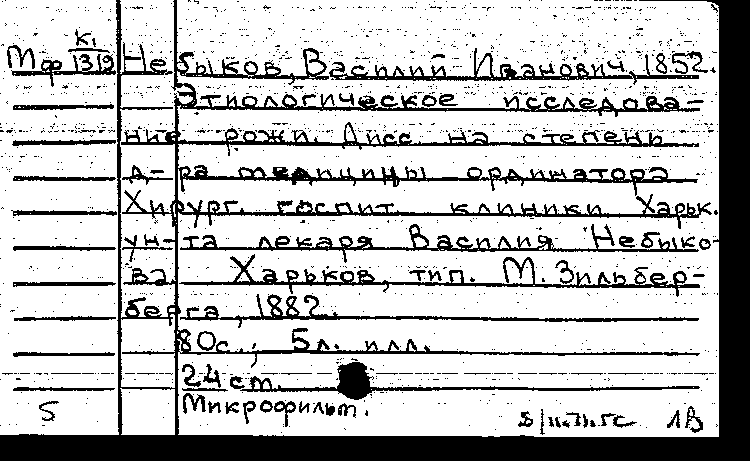 Мф К1/1319 Небыков, Василий Иванович, 1852.
Этиологическое исследова-
ние рожи. Дисс. на степень
д-ра медицины ординатора
Хирург. госпит. клиники Харьк.
ун-та лекаря Василия Небыко-
ва. Харьков, тип. М. Зильбер-
берга, 1882.
80с.; 5л. илл.
24 см.
Микрофильм.
S
1В